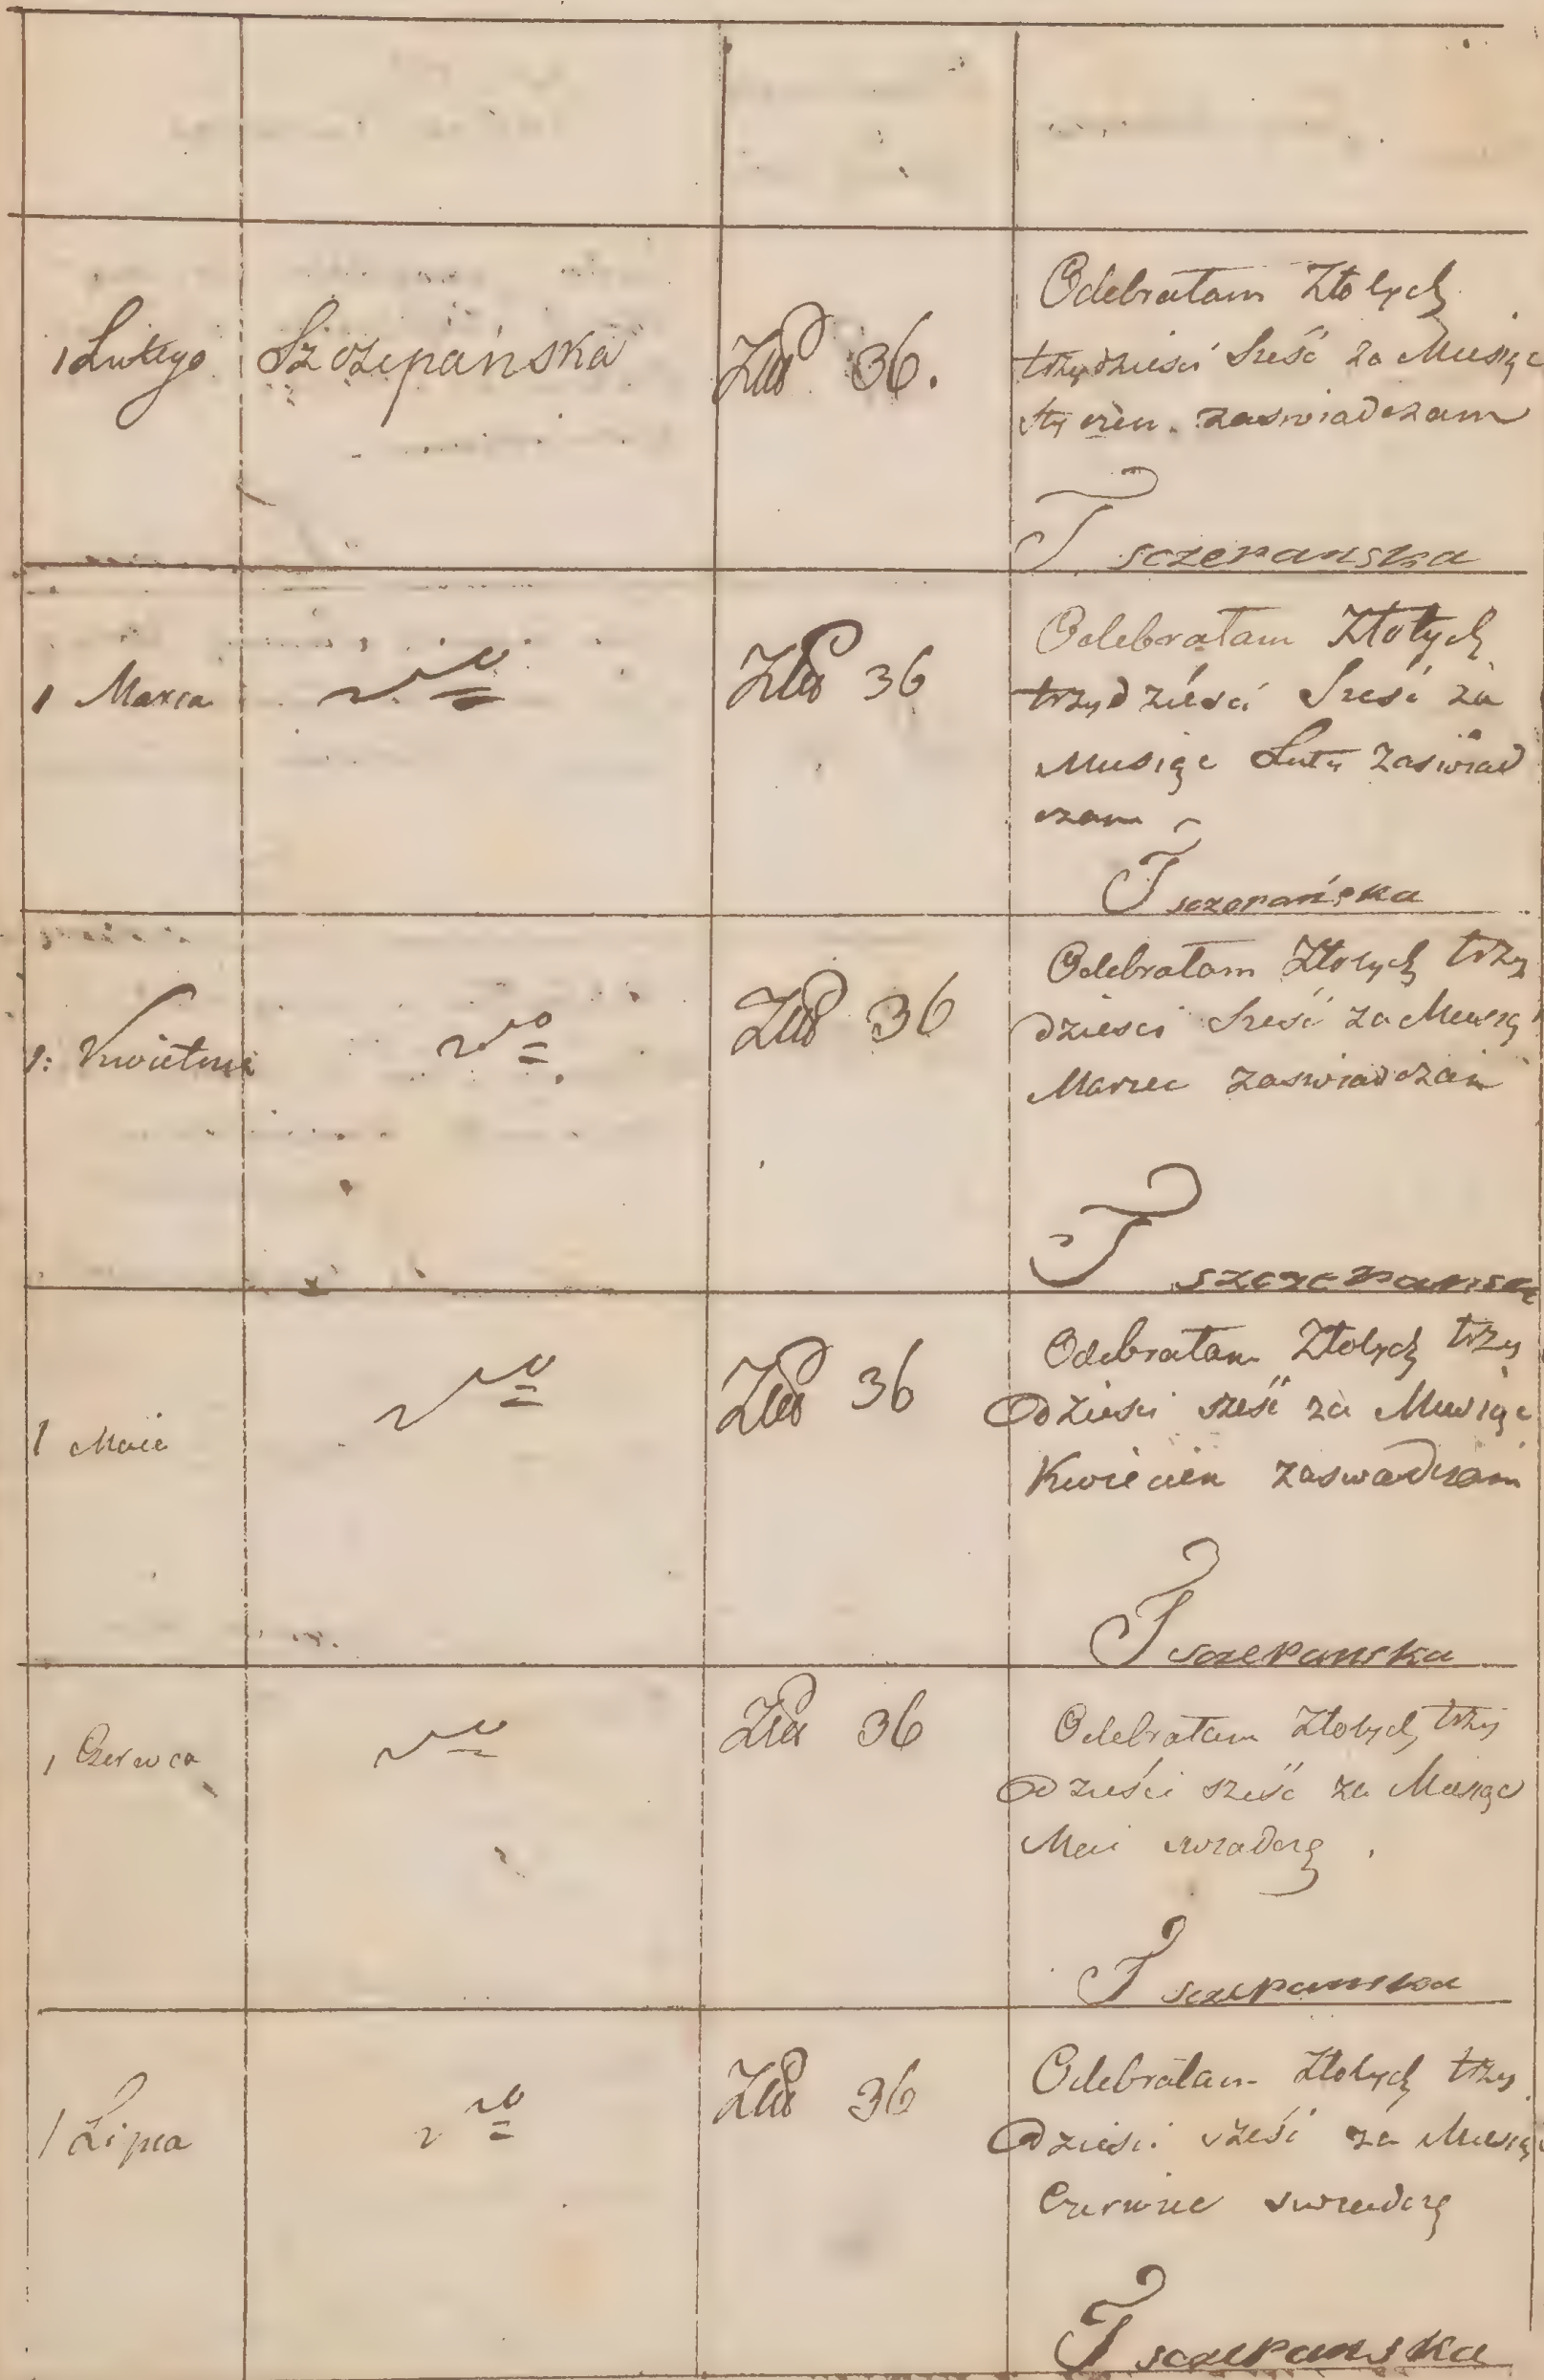 1 Lutego Szczepańska Złp 36. Odebrałam Złotych
trzydzieści Sześć za Miesiąc
Styczen. zaswiadczam
T sczepanska
1 Marca Złp 36 Odebrałam Złotych
trzydzieści Sześć za
Miesiąc Luty Zaswiad
czam
T sczepańska
1: Kwietnia Złp 36 Odebrałam Złotych trzy
dziesci Sześć za Miesią
Marzec zaswiadczam
T szczepansk
1 Maia Złp 36 Odebrałam Złotych trzy
dziesci sześć za Miesiąc
Kwiecien zaswadczam
T sczepanska
1 Czerwca Złp 36 Odebrałam Złotych trzy
dzieści sześć za Miesiąc
Mai swiadczę
T sczepanska
1 Lipca Złp 36 Odebrałam Złotych trzy
dziesci sześć za Miesią
Czerwiec swiadczę
T sczepanska